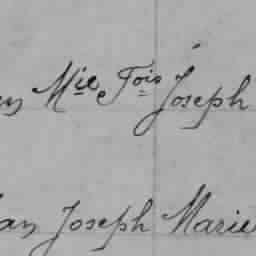 Mie Fois Joseph
Joseph Marie